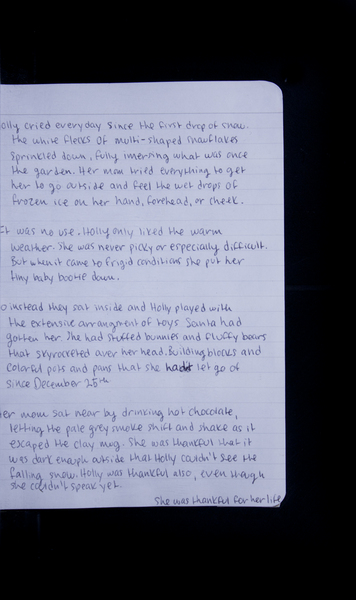 olly cried everyday since the first drop of snow.
The white flecks of multi-shaped snowflakes
sprinkled down, fully imersing what was once
the garden. Her mom tried everything to get
her to go outside and feel the wet drops of
frozen ice on her hand, forehead, or cheek.
It was no use. Holly only liked the warm
weather. She was never picky or especially difficult.
But when it came to frigid conditions she put her
tiny baby bootie down.
o instead they sat inside and Holly played with
the extensive arrangment of toys Santa had
gotten her. She had stuffed bunnies and fluffy bears
that skyrocketed over her head. Building blocks and
colorful pots and pans that she hadn't let go of
since December 25th
er mom sat near by drinking hot chocolate,
letting the pale grey smoke shift and shake as it
escaped the clay mug. She was thankful that it
was dark enough outside that Holly couldn't see the
falling snow. Holly was thankful also, even though
she couldn't speak yet.
She was thankful for her life